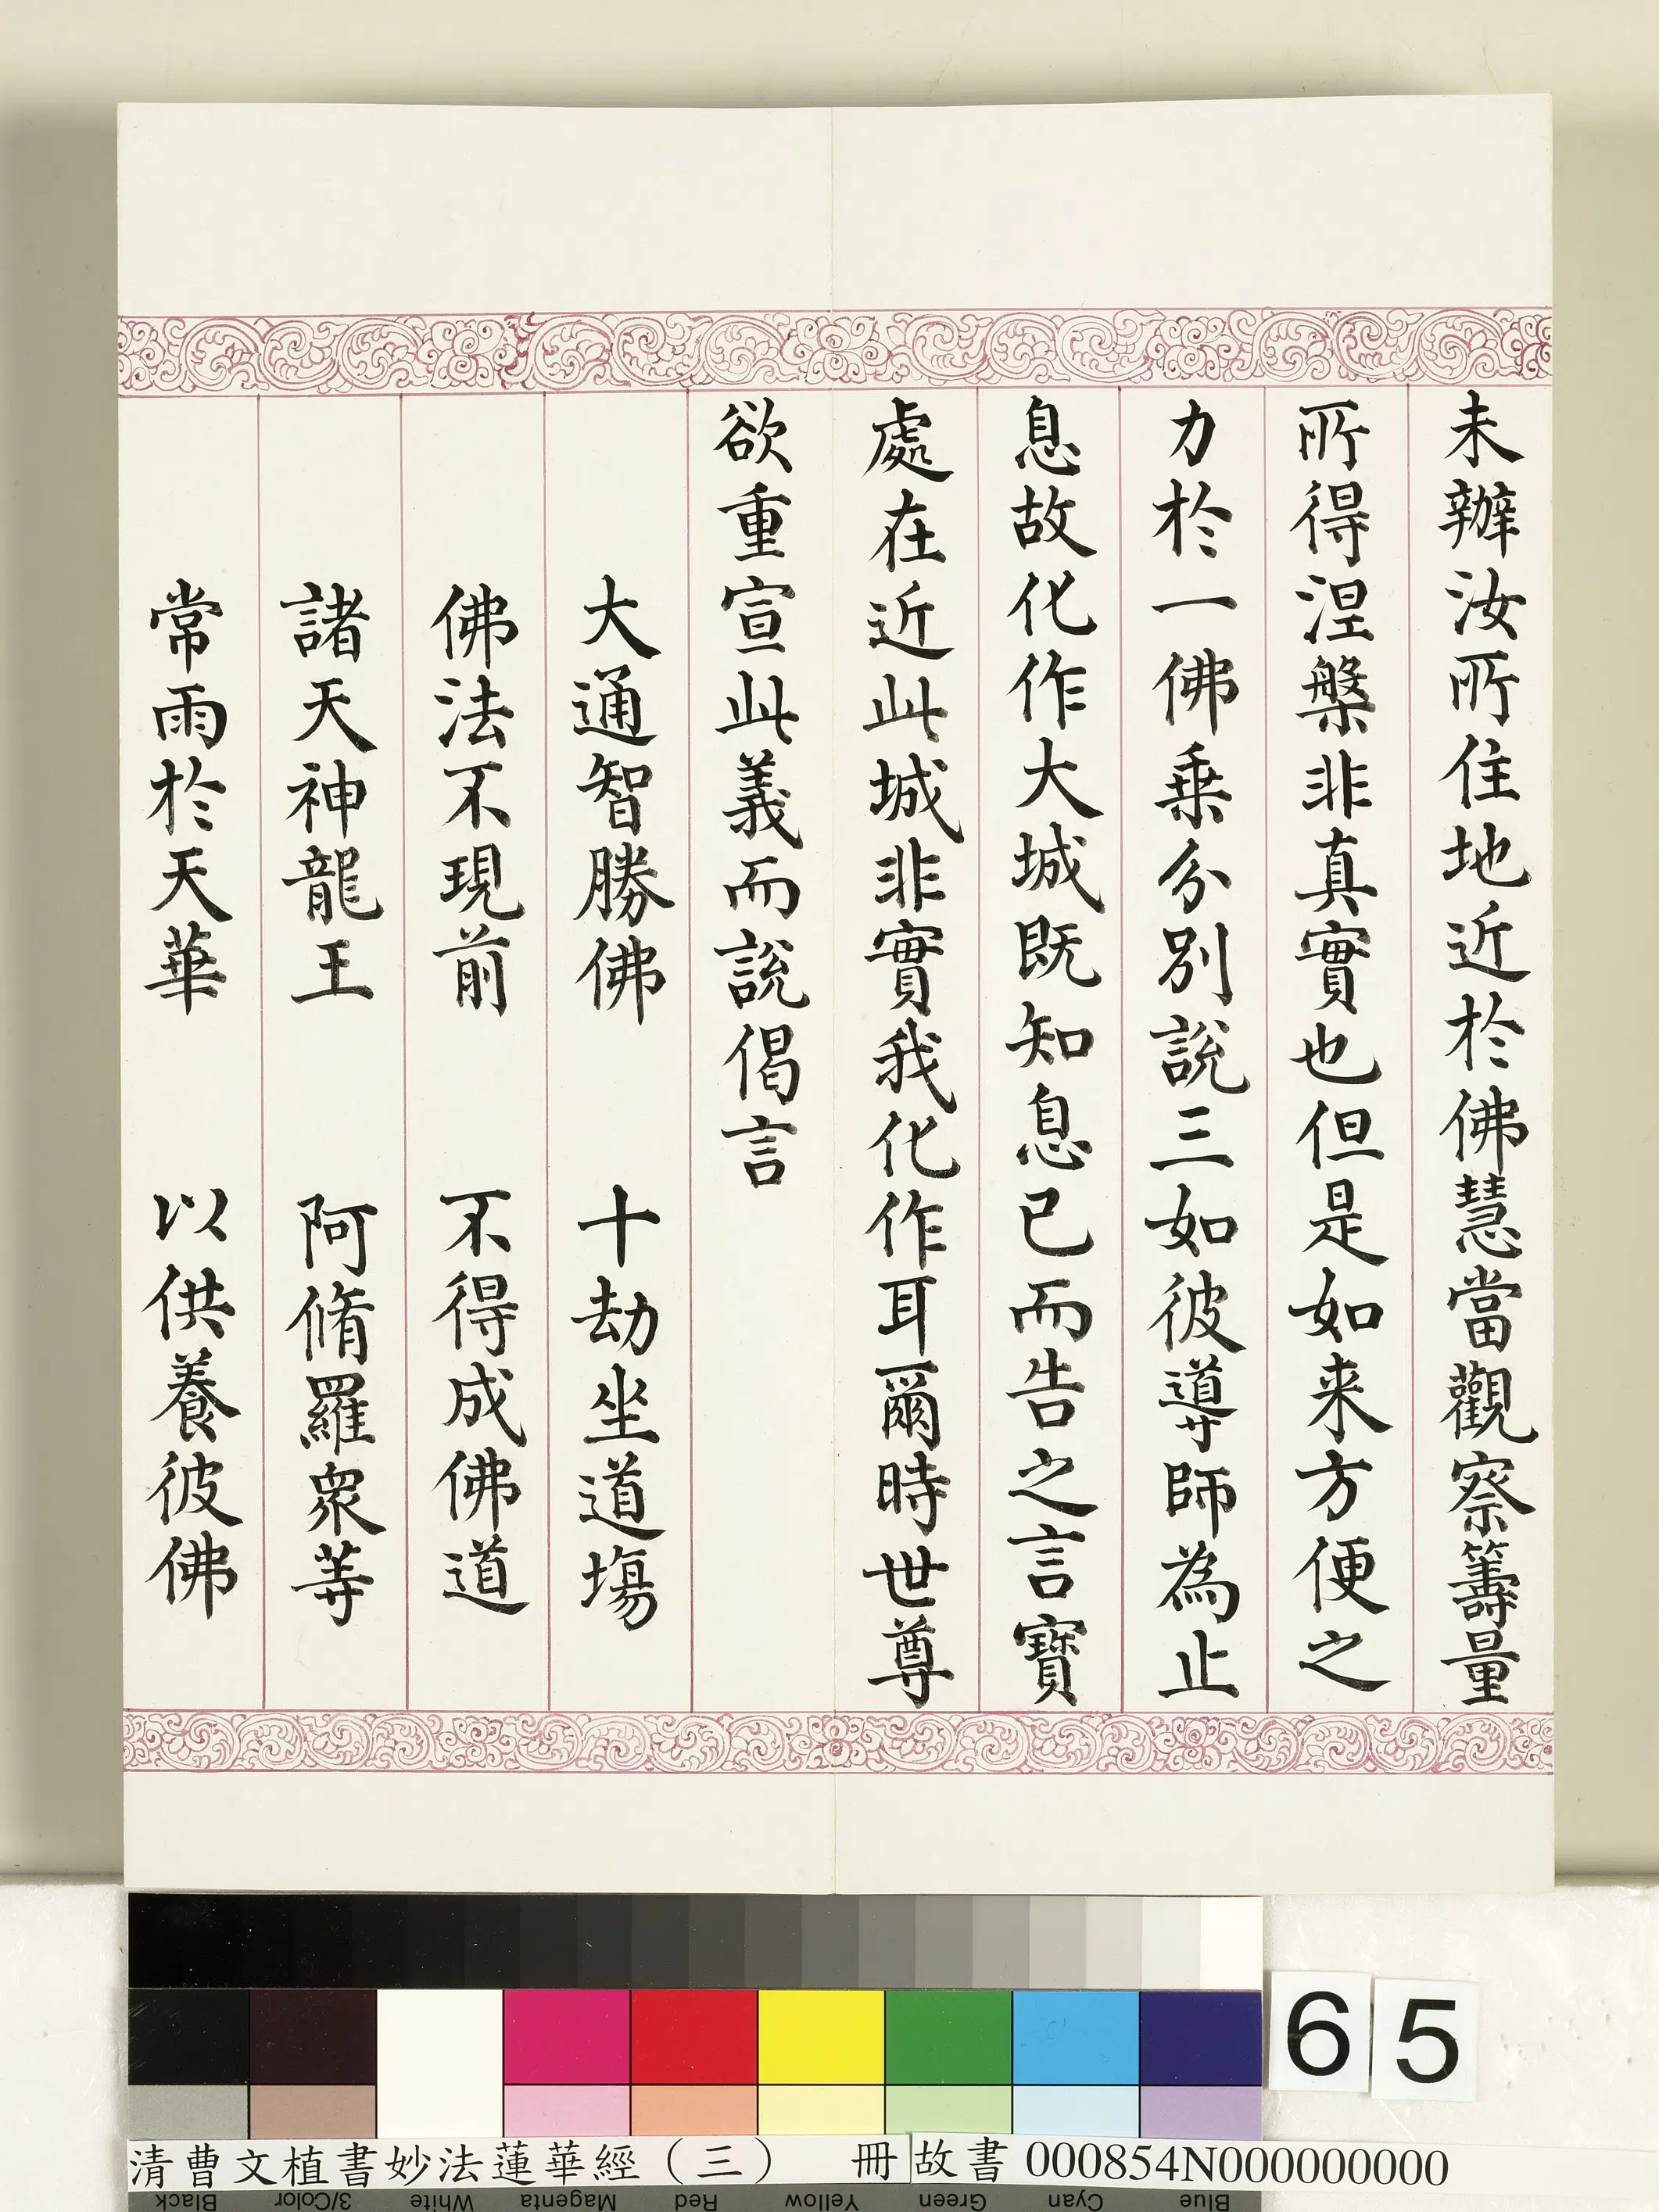 未辦汝所住地近於佛慧當觀察籌量
所得涅槃非真實也但是如来方便之
力於一佛乗分別說三如彼導師為止
息故化作大城既知息已而告之言寶
處在近此城非實我化作耳爾時世尊
欲重宣此義而說偈言
大通智勝佛 十劫坐道場
佛法不現前 不得成佛道
諸天神龍王 阿脩羅衆等
常雨於天華 以供養彼佛
65
清曹文植書妙法蓮華經（三） 冊 故書 000854N000000000
Black 3/Color White Magenta Red Yellow Green Cyan Blue